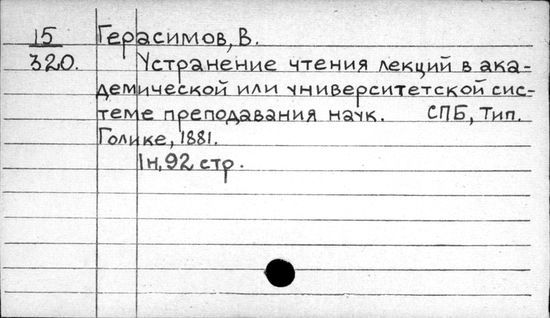 15 Герасимов, В.
320. Устранение чтения лекций в ака-
демической или университетской сис-
теме преподавания наук. СПБ, Тип.
Голике, 1881.
1н, 92 стр.